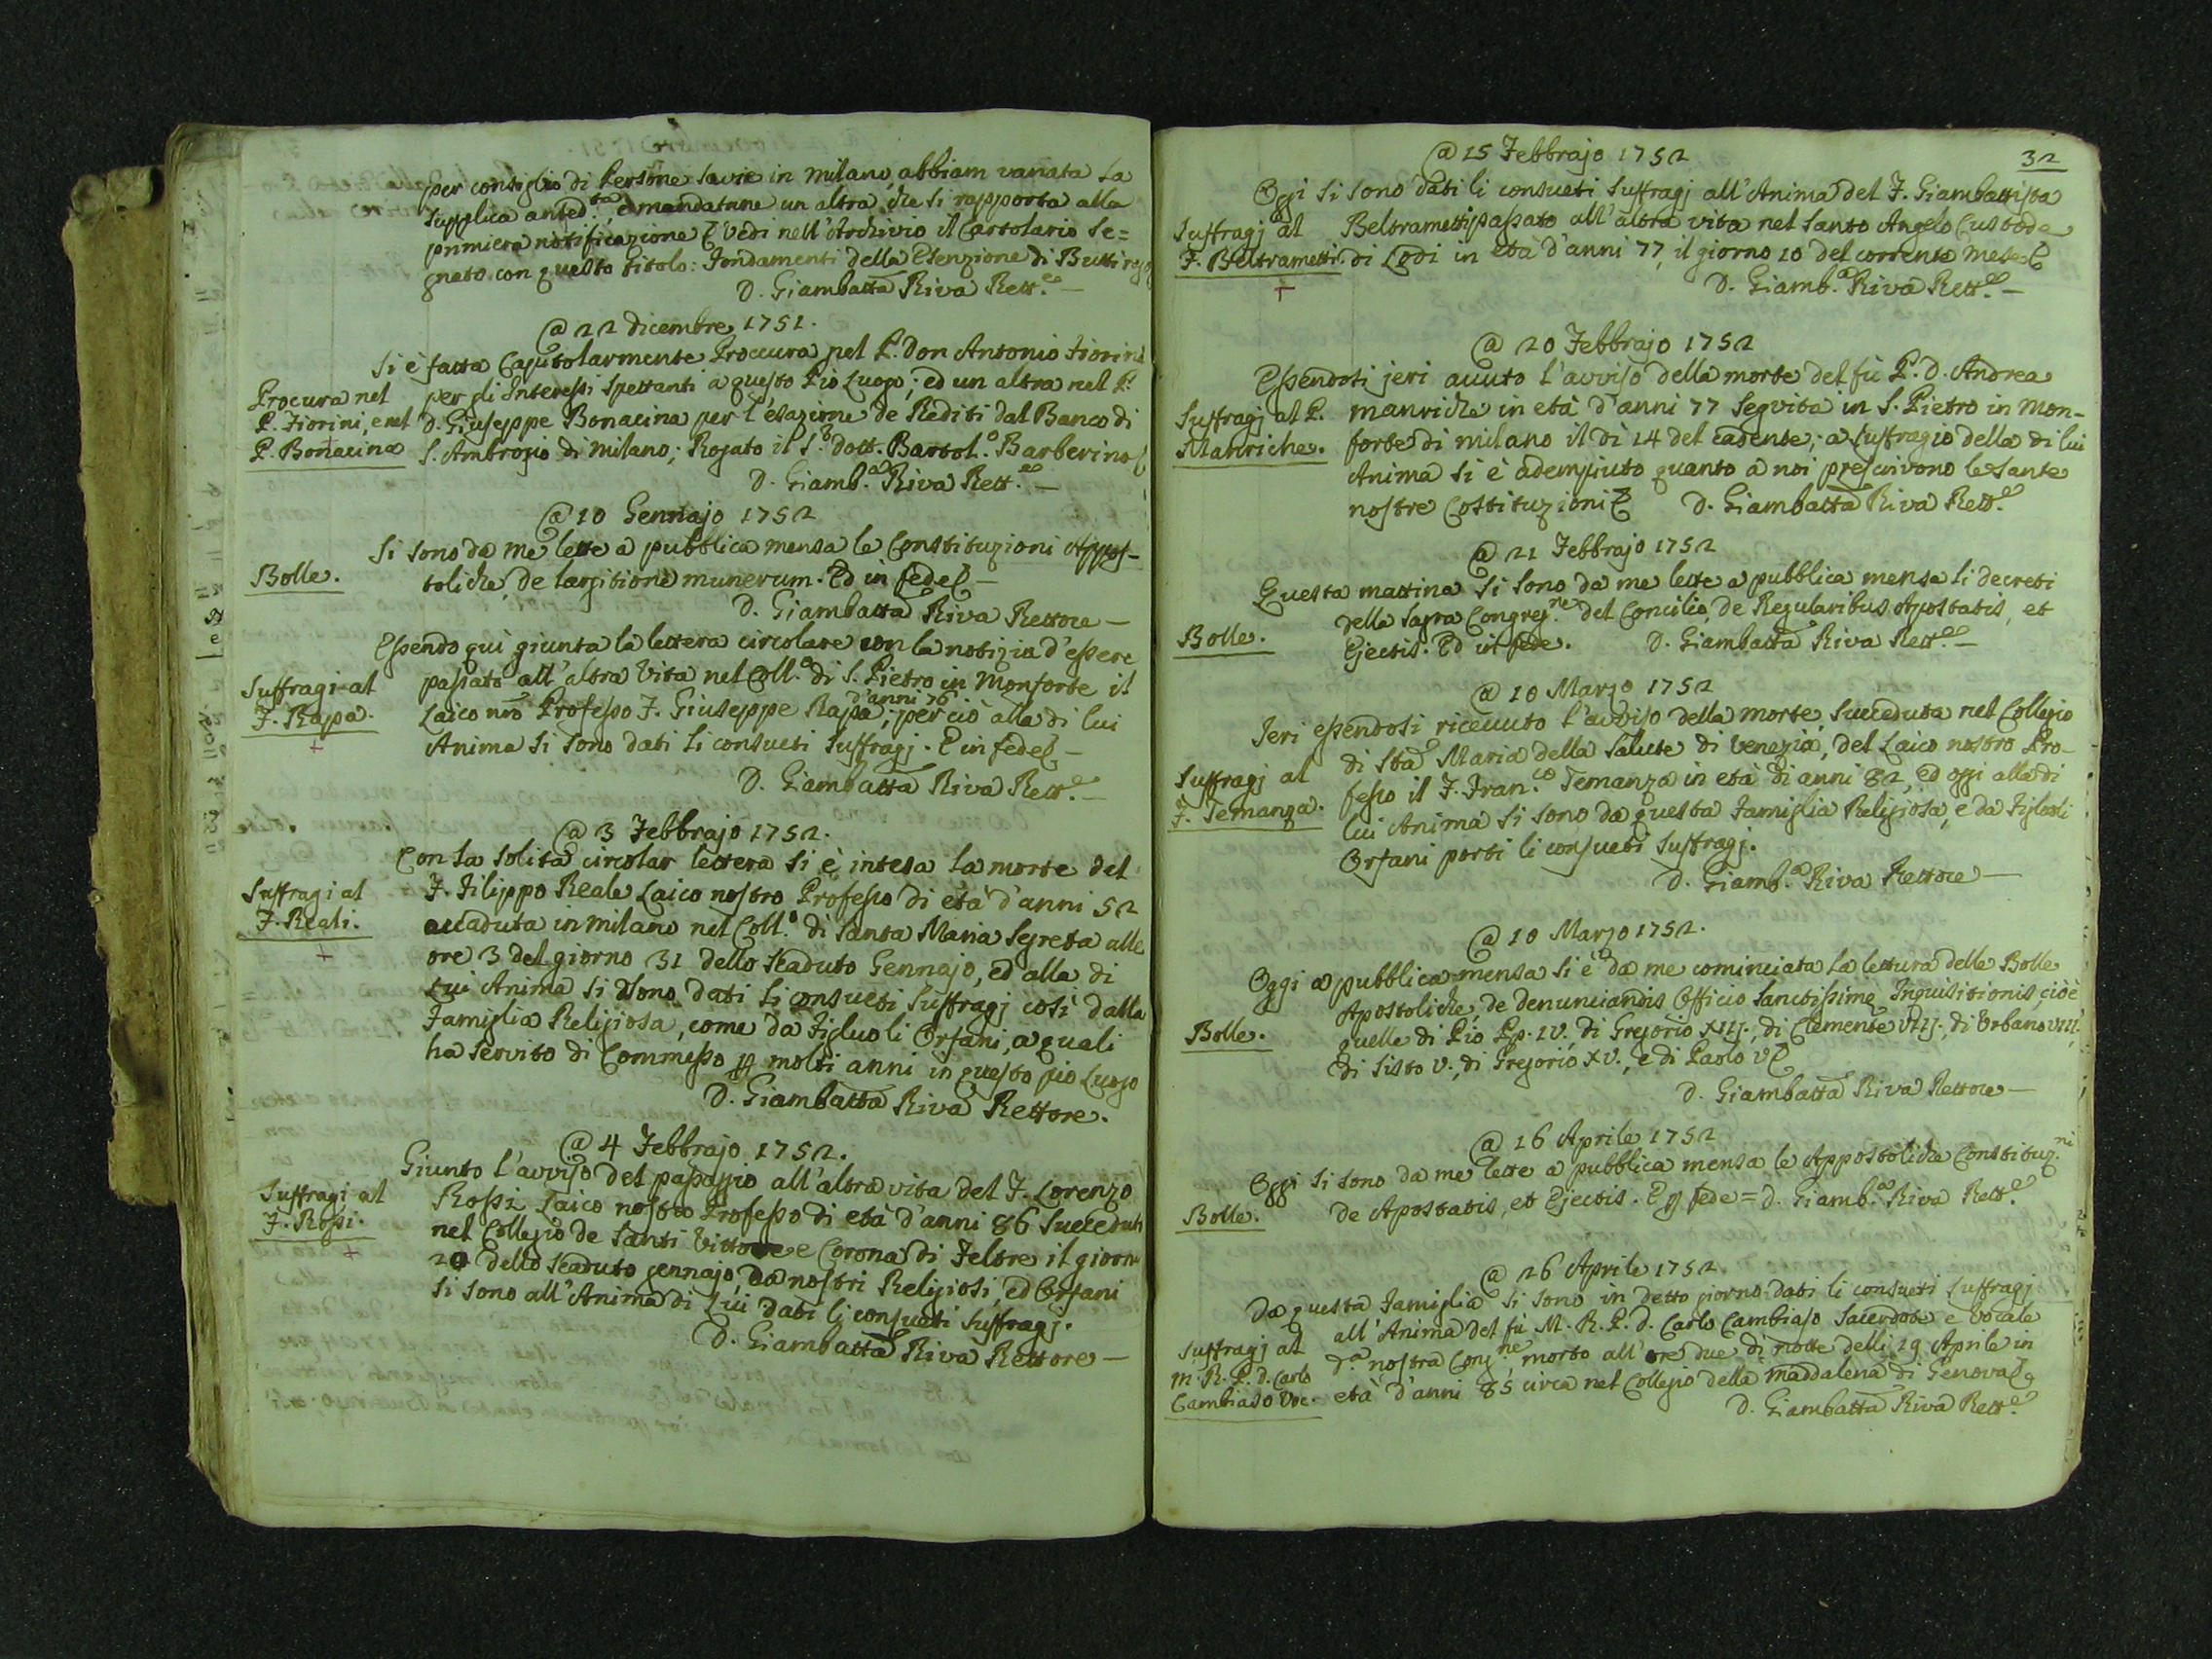 per consiglio di Persone savie in Milano, abbiam variata la
supplica anted.ta, e mandatane un altra, che si rapporta alla
primiera notificazione. Vedi nell'Archivio il Cartolario se=
gnato con questo titolo: Fondamenti della Esenzione di
D. Giambatta Riva Rett.e —
@ 22 dicembre 1751.
Si è fatta Capitolarmente Proccura nel P. Don Antonio Fiorini
Procura nel
P. Fiorini, e nel
P. Bonacina
per gli Interessi spettanti a questo Pio Luogo; ed un altra nel P.
D. Giuseppe Bonacina per l'esazione de Redditi dal Banco di
S. Ambrogio di Milano; Rogato il S.r dott. Bartol.o Barberino
D. Giamb.a Riva Rett.e —
@ 10 Gennajo 1752
Si sono da me lette a pubblica mensa le Constituzioni Appos-
Bolle.
toliche, de largitione munerum. Ed in fede —
D. Giambatta Riva Rettore —
Essendo quì giunta la lettera circolare con la notizia d'essere
Suffragi al
F. Rapa.
+
passato all'altra Vita nel Coll.o di S. Pietro in Monforte il
Laico nro Professo F. Giuseppe Rapa, d'anni 76; perciò alla di lui
Anima si sono dati li consueti suffragj. E in fede —
D. Giambatta Riva Rett.e —
@ 3 Febbrajo 1752.
Con la solita circolar lettera si è intesa la morte del
Suffragi al
F. Reali.
+
F. Filippo Reale Laico nostro Professo di età d'anni 52
accaduta in Milano nel Coll.o di Santa Maria Segreta alle
ore 3 del giorno 31 dello scaduto Gennajo, ed alla di
lui Anima si sono dati li consueti suffragj così dalla
Famiglia Religiosa, come da Figliuoli Orfani, a quali
ha servito di Commesso p molti anni in questo pio Luogo
D. Giambatta Riva Rettore.
@ 4 Febbrajo 1752.
Giunto l'avviso del passaggio all'altra vita del F. Lorenzo
Suffragi al
F. Rossi.
+
Rossi Laico nostro Professo di età d'anni 86 succeduto
nel Collegio de Santi Vittore e Corona di Feltre il giorno
20 dello scaduto gennajo, da nostri Religiosi, ed Orfani
si sono all'Anima di Lui dati li consueti suffragj.
D. Giambatta Riva Rettore —
32
@ 15 Febbrajo 1752
Oggi si sono dati li consueti suffragj all'Anima del F. Giambattista
Suffragj al
F. Beltrametti
+
Beltrametti passato all'altra vita nel Santo Angelo Custode
di Lodi in età d'anni 77, il giorno 10 del corrente mese
D. Giamb.a Riva Rett.e —
@ 20 Febbrajo 1752
Essendosi jeri avuto l'avviso della morte del fù P. D. Andrea
Suffragj al P.
Manriche.
Manriche in età d'anni 77 seguita in S. Pietro in Mon-
forte di Milano il dì 14 del cadente; a suffragio della di lui
Anima si è adempiuto quanto a noi prescrivono le sante
nostre Costituzioni D. Giambatta Riva Rett.e
@ 21 Febbrajo 1752
Questa mattina si sono da me lette a pubblica mensa li decreti
Bolle.
della Sagra Congreg.ne del Concilio, de Regularibus Apostatis, et
Ejectis. Ed in fede. D. Giambatta Riva Rett.e —
@ 10 Marzo 1752
Jeri essendosi ricevuto l'avviso della morte succeduta nel Collegio
Suffragj al
F. Temanza.
di Sta Maria della Salute di Venezia, del Laico nostro Pro-
fesso il F. Fran.co Temanza in età di anni 82, ed oggi alla di
lui Anima si sono da questa Famiglia Religiosa, e da Figliuoli
Orfani porti li consueti suffragj.
D. Giamb.a Riva Rettore —
@ 10 Marzo 1752.
Oggi a pubblica mensa si è da me cominciata la lettura delle Bolle
Bolle.
Apostoliche, de denunciandis Officio Sanctissime Inquisitionis, cioè
quelle di Pio Pp. IV., di Gregorio XIIJ., di Clemente VIIJ., di Urbano VIIJ.,
di Sisto V., di Gregorio XV., e di Paolo V
D. Giambatta Riva Rettore —
@ 16 Aprile 1752
Oggi si sono da me lette a pubblica mensa le Appostoliche Constituz.ni
Bolle.
de Apostatis, et Ejectis. E p fede = D. Giamb.a Riva Rett.e
@ 26 Aprile 1752
Da questa Famiglia si sono in detto giorno dati li consueti suffragj
Suffragj al
M. R. P. D. Carlo
Cambiaso Voc.
all'Anima del fù M. R. P. D. Carlo Cambiaso Sacerdote e Vocale
d.a nostra Cong.ne morto all'ore due di notte delli 19 Aprile in
età d'anni 85 circa nel Collegio della Maddalena di Genova
D. Giambatta Riva Rett.e